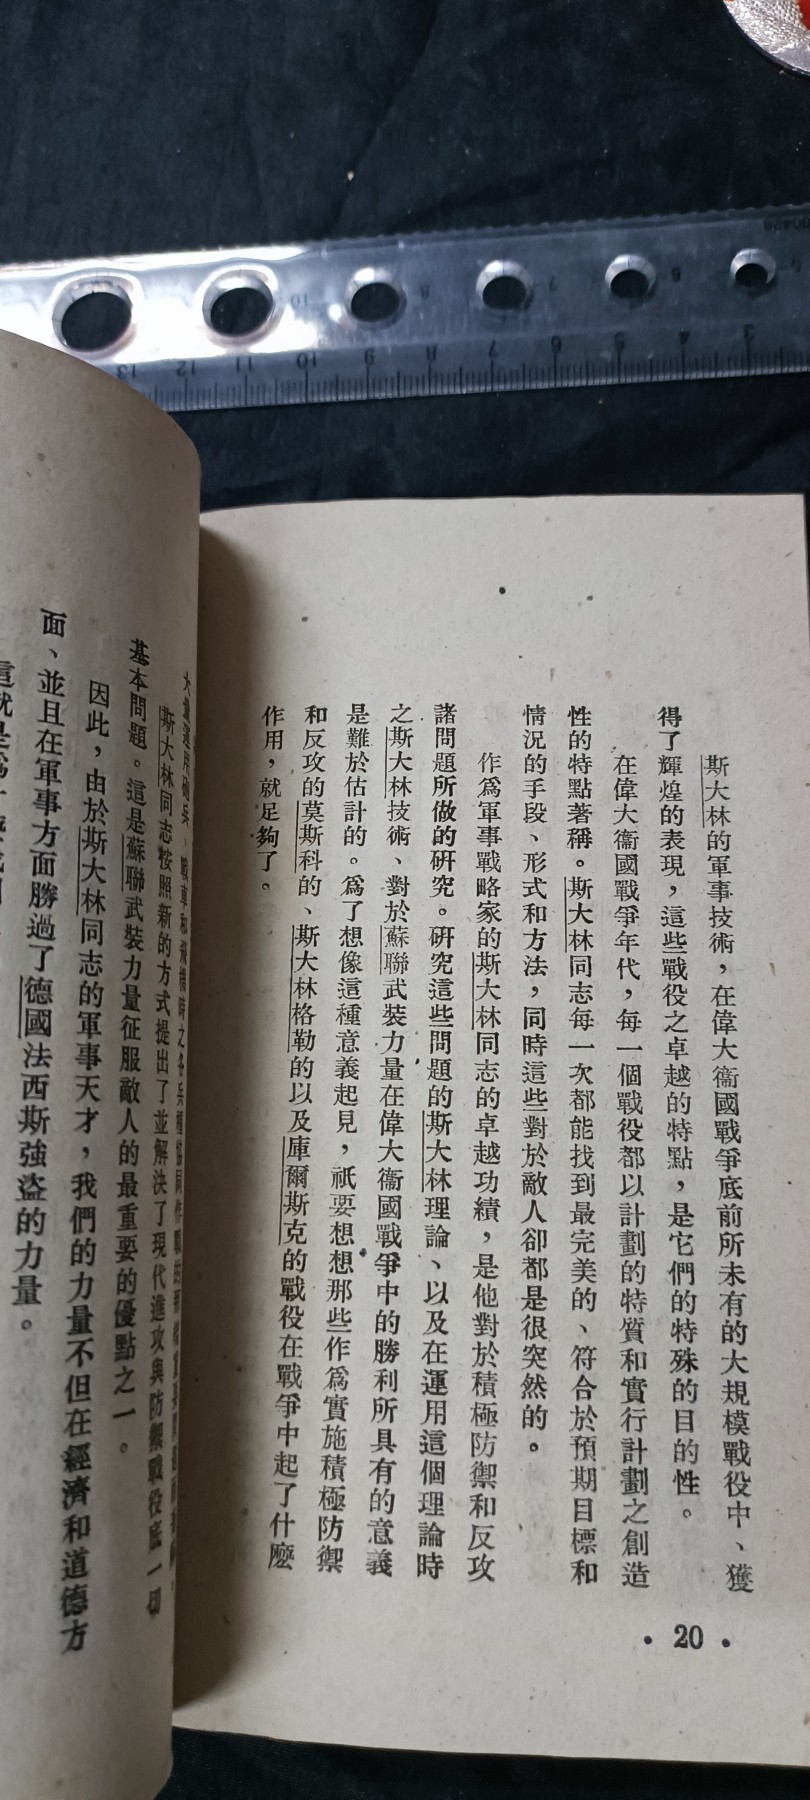 斯大林的軍事技術，在偉大衞國戰爭底前所未有的大規模戰役中、獲
得了輝煌的表現，這些戰役之卓越的特點，是它們的特殊的目的性。
在偉大衞國戰爭年代，每一個戰役都以計劃的特質和實行計劃之創造
性的特點著稱。斯大林同志每一次都能找到最完美的、符合於預期目標和
情況的手段、形式和方法，同時這些對於敵人卻都是很突然的。
作爲軍事戰略家的斯大林同志的卓越功績，是他對於積極防禦和反攻
諸問題所做的研究。研究這些問題的斯大林理論、以及在運用這個理論時
之斯大林技術、對於蘇聯武裝力量在偉大衞國戰爭中的勝利所具有的意義
是難於估計的。爲了想像這種意義起見，祇要想想那些作爲實施積極防禦
和反攻的莫斯科的、斯大林格勒的以及庫爾斯克的戰役在戰爭中起了什麼
作用，就足夠了。
• 20 •
斯大林同志按照新的方式提出了並解決了現代進攻與防禦戰役底一切
基本問題。這是蘇聯武裝力量征服敵人的最重要的優點之一。
因此，由於斯大林同志的軍事天才，我們的力量不但在經濟和道德方
面、並且在軍事方面勝過了德國法西斯強盜的力量。
13 12 11 10 9 8 7 6 5 4 3